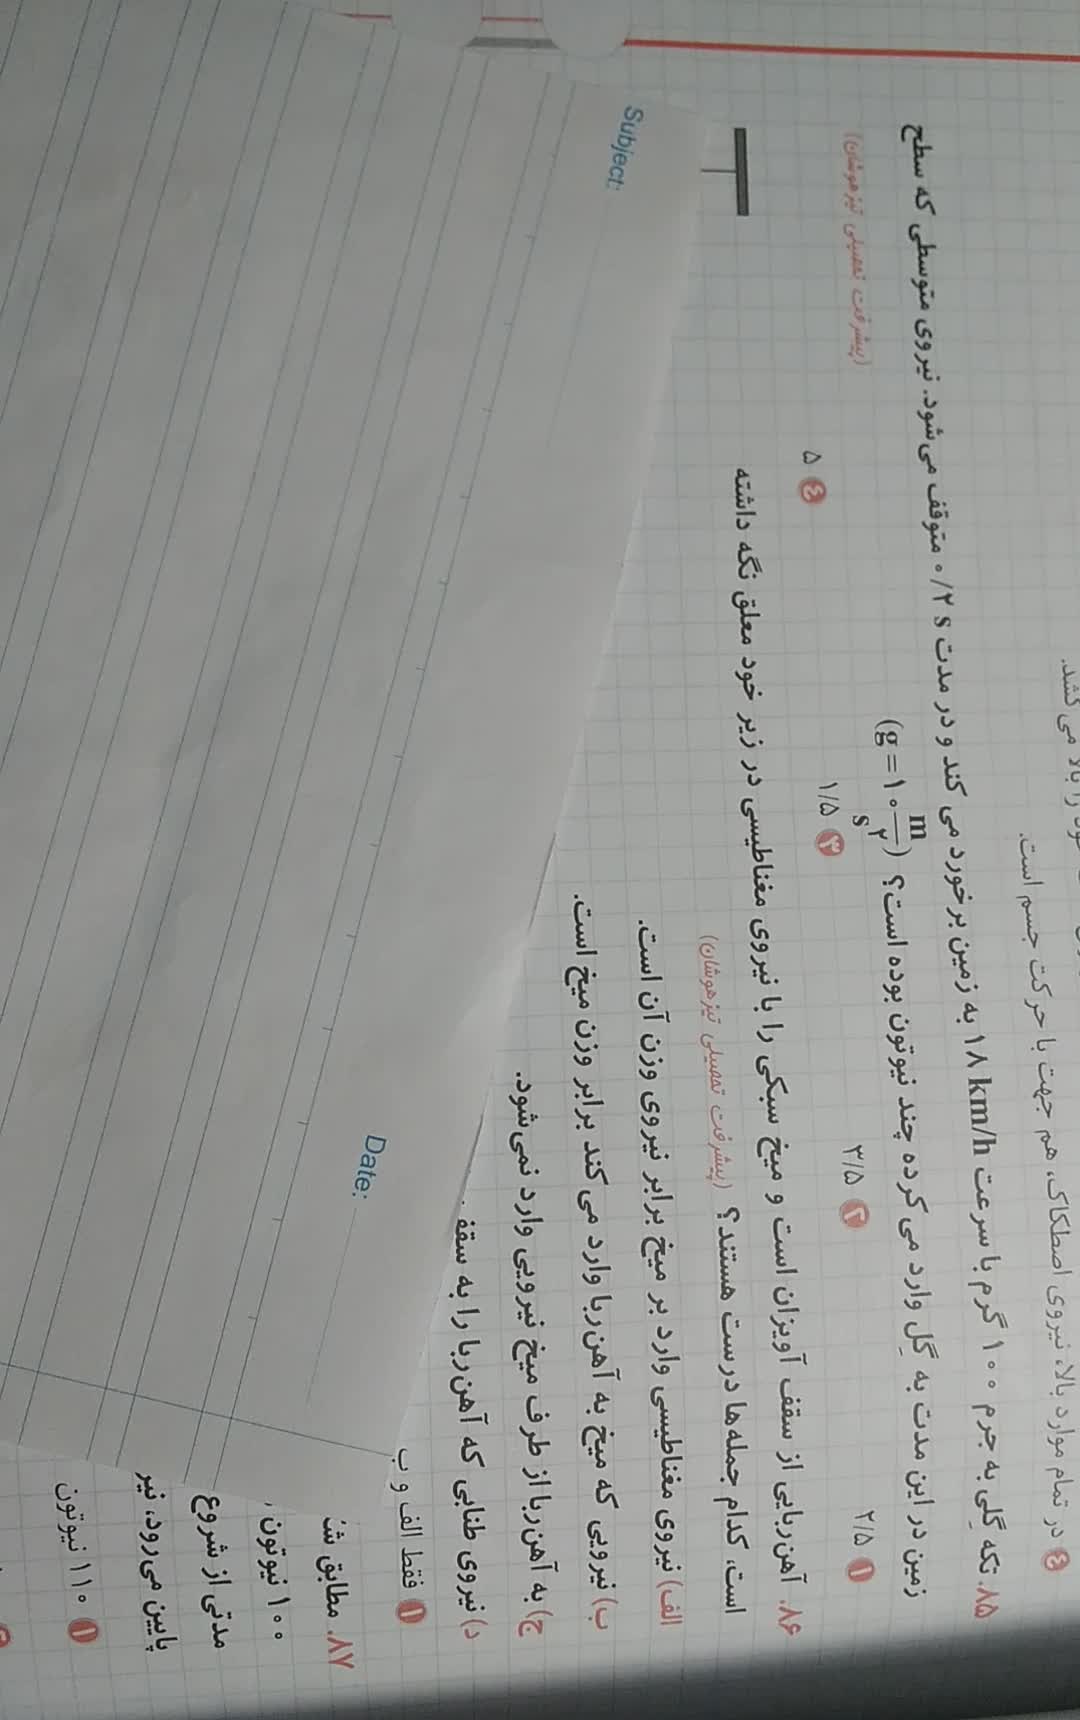 ود را بالا می‌کشد.
۴ در تمام موارد بالا، نیروی اصطکاک، هم جهت با حرکت جسم است.
۸۵. تکه گِلی به جرم ۱۰۰ گرم با سرعت ۱۸ km/h به زمین برخورد می‌کند و در مدت ۰/۲ s متوقف می‌شود. نیروی متوسطی که سطح
زمین در این مدت به گِل وارد می‌کرده چند نیوتون بوده است؟ (g = ۱۰ m/s۲) (پیشرفت تحصیلی تیزهوشان)
۱ ۲/۵ ۲ ۳/۵ ۳ ۱/۵ ۴ ۵
۸۶. آهن‌ربایی از سقف آویزان است و میخ سبکی را با نیروی مغناطیسی در زیر خود معلق نگه داشته
است، کدام جمله‌ها درست هستند؟ (پیشرفت تحصیلی تیزهوشان)
الف) نیروی مغناطیسی وارد بر میخ برابر نیروی وزن آن است.
ب) نیرویی که میخ به آهن‌ربا وارد می‌کند برابر وزن میخ است.
ج) به آهن‌ربا از طرف میخ نیرویی وارد نمی‌شود.
د) نیروی طنابی که آهن‌ربا را به سقف
۱ فقط الف و ب
۸۷. مطابق
۱۰۰ نیوتون،
مدتی از شروع
پایین می‌رود، نیر
۱ ۱۱۰ نیوتون
Subject:
Date: